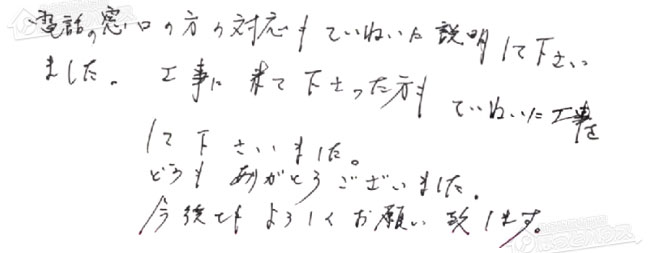 電話の窓口の方の対応もていねいな説明して下さい
ました。 工事に来て下さった方も ていねいに工事を
して下さいました。
どうもありがとうございました。
今後ともよろしくお願い致します。